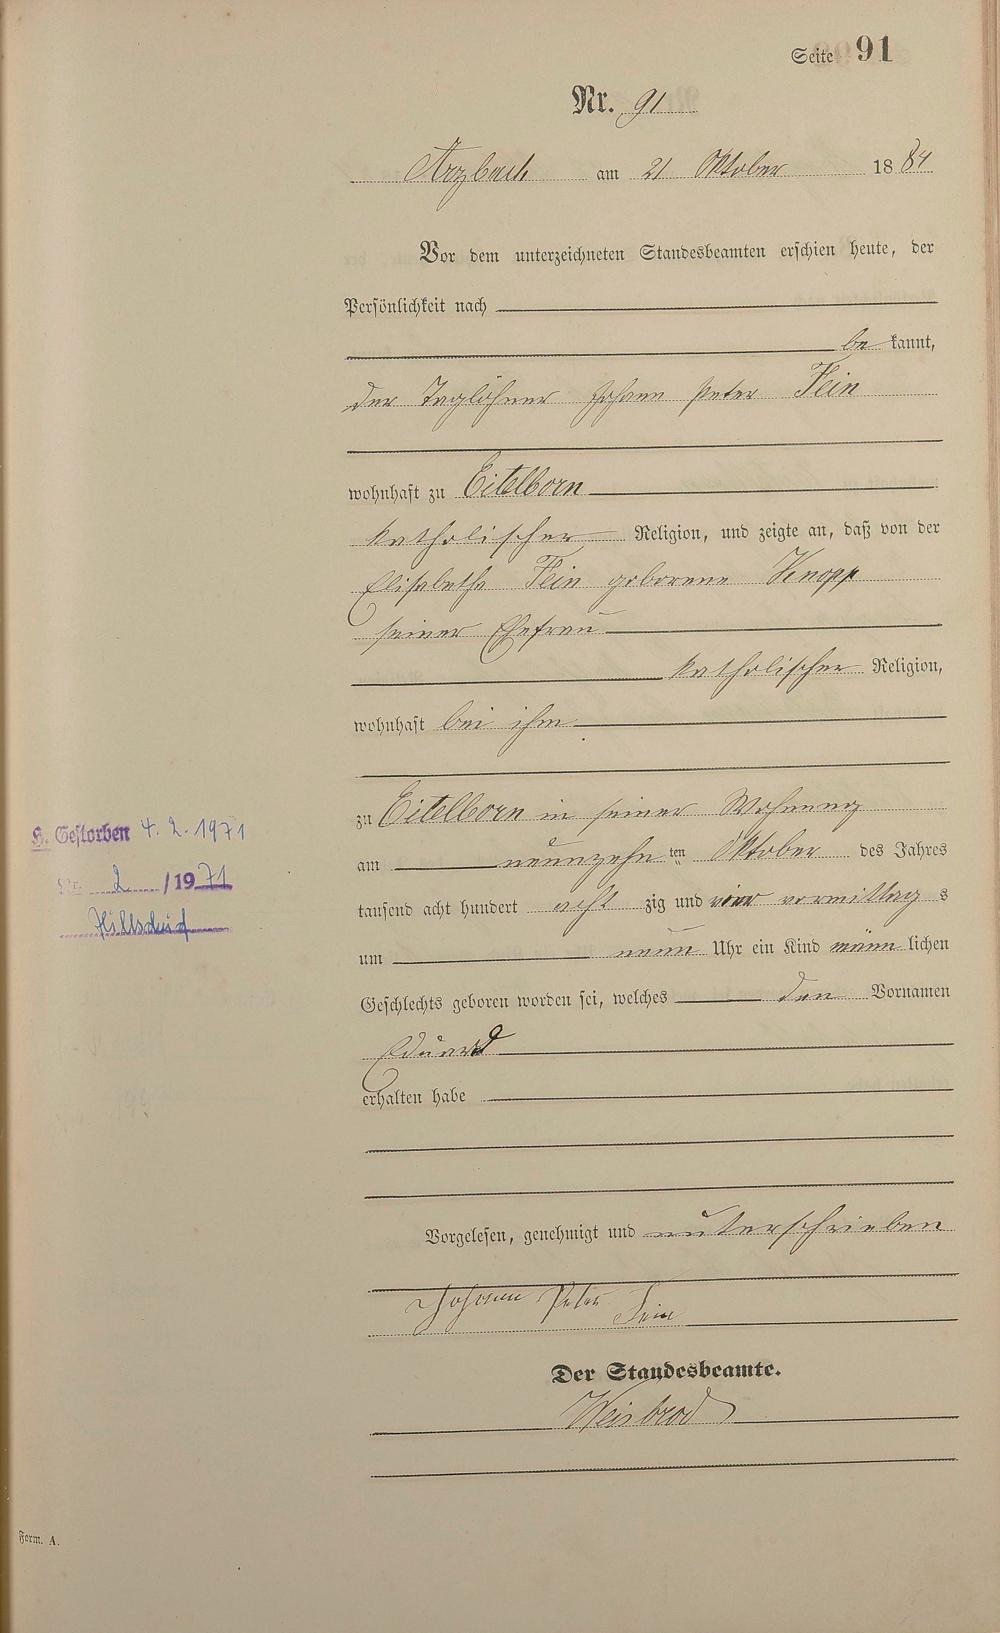 Seite 91
Nr. 91
Arzbach am 21 Oktober 1884
Vor dem unterzeichneten Standesbeamten erschien heute, der
Persönlichkeit nach
bekannt,
der Taglöhner Johann Peter Fein
wohnhaft zu Eitelborn
katholischer Religion, und zeigte an, daß von der
Elisabetha Fein geborene Knopp
seiner Ehefrau
katholischer Religion,
wohnhaft bei ihm
zu Eitelborn in seiner Wohnung
am neunzehnten Oktober des Jahres
tausend acht hundert achtzig und vier vormittags
um neun Uhr ein Kind männlichen
Geschlechts geboren worden sei, welches den Vornamen
Eduard
erhalten habe
Vorgelesen, genehmigt und unterschrieben
Johann Peter Fein
Der Standesbeamte.
Weisbrod
H. Gestorben 4.2.1971
Nr. 2 /1971
Hillscheid
Form. A.